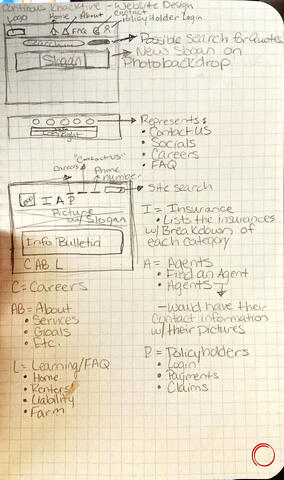 Website Design
Logo
Home
About
Contact
Policy Holder Login
FAQ
Possible Search for Quotes
Slogan
New Slogan on
Photo backdrop
Represents:
• Contact US
• Socials
• Careers
• FAQ
"Contact US"
Careers
Phone
number
Site search
Logo I A P
Picture
w/ Slogan
Info Bulletin
C AB L
I = Insurance
• Lists the insurances
w/ Breakdown of
each category
C = Careers
A = Agents
• Find an Agent
• Agents
- Would have their
Contact information
w/ their pictures
AB = About
• Services
• Goals
• Etc.
P = Policyholders
• Login
• Payments
• Claims
L = Learning/FAQ
• Home
• Renters
• Liability
• Farm